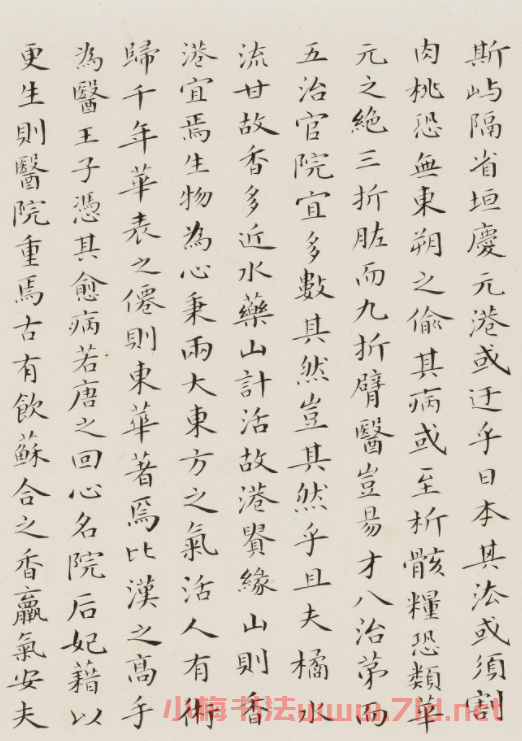 斯屿隔省垣慶元港或迂乎日本其法或須割
肉桃恐無東朔之偷其病或至析骸糧恐類華
元之絶三折肱而九折臂醫豈易才八治第而
五治官院宜多數其然豈其然乎且夫橘水
流甘故香多近水藥山計活故港賢緣山則香
港宜焉生物為心秉兩大東方之氣活人有術
歸千年華表之僊則東華著焉比漢之高手
為醫王子憑其愈病若唐之回心名院后妃藉以
更生則醫院重焉古有飲蘇合之香羸氣安夫
小梅书法www.7ld.net